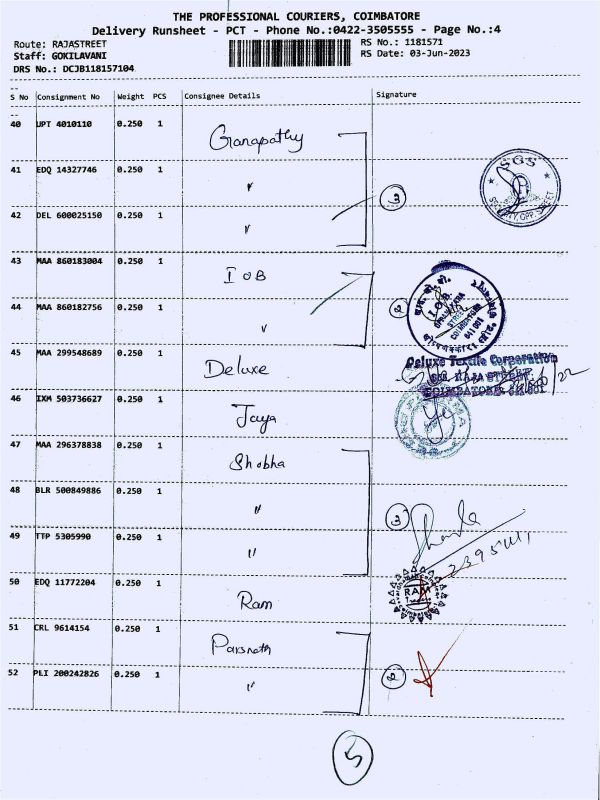 THE PROFESSIONAL COURIERS, COIMBATORE
Delivery Runsheet - PCT - Phone No.:0422-3505555 - Page No.:4
Route: RAJASTREET
RS No.: 1181571
Staff: GOKILAVANI
RS Date: 03-Jun-2023
DRS No.: DCJB118157104
--
S No Consignment No Weight PCS Consignee Details Signature
--
40 UPT 4010110 0.250 1 Ganapathy
41 EDQ 14327746 0.250 1 "
3
SGS
42 DEL 600025150 0.250 1 "
43 MAA 860183004 0.250 1 IOB
44 MAA 860182756 0.250 1 "
2
I.O.B.
STREET
COIMBATORE
641 001
45 MAA 299548689 0.250 1 Deluxe
Deluxe Textile Corporation
RAJA STREET
COIMBATORE - 641 001
46 IXM 503736627 0.250 1 Jaya
47 MAA 296378838 0.250 1 Shobha
48 BLR 500849886 0.250 1 "
3
49 TTP 5305990 0.250 1 "
50 EDQ 11772204 0.250 1 Ram
RAM
51 CRL 9614154 0.250 1 Parsnath
52 PLI 200242826 0.250 1 "
2
5